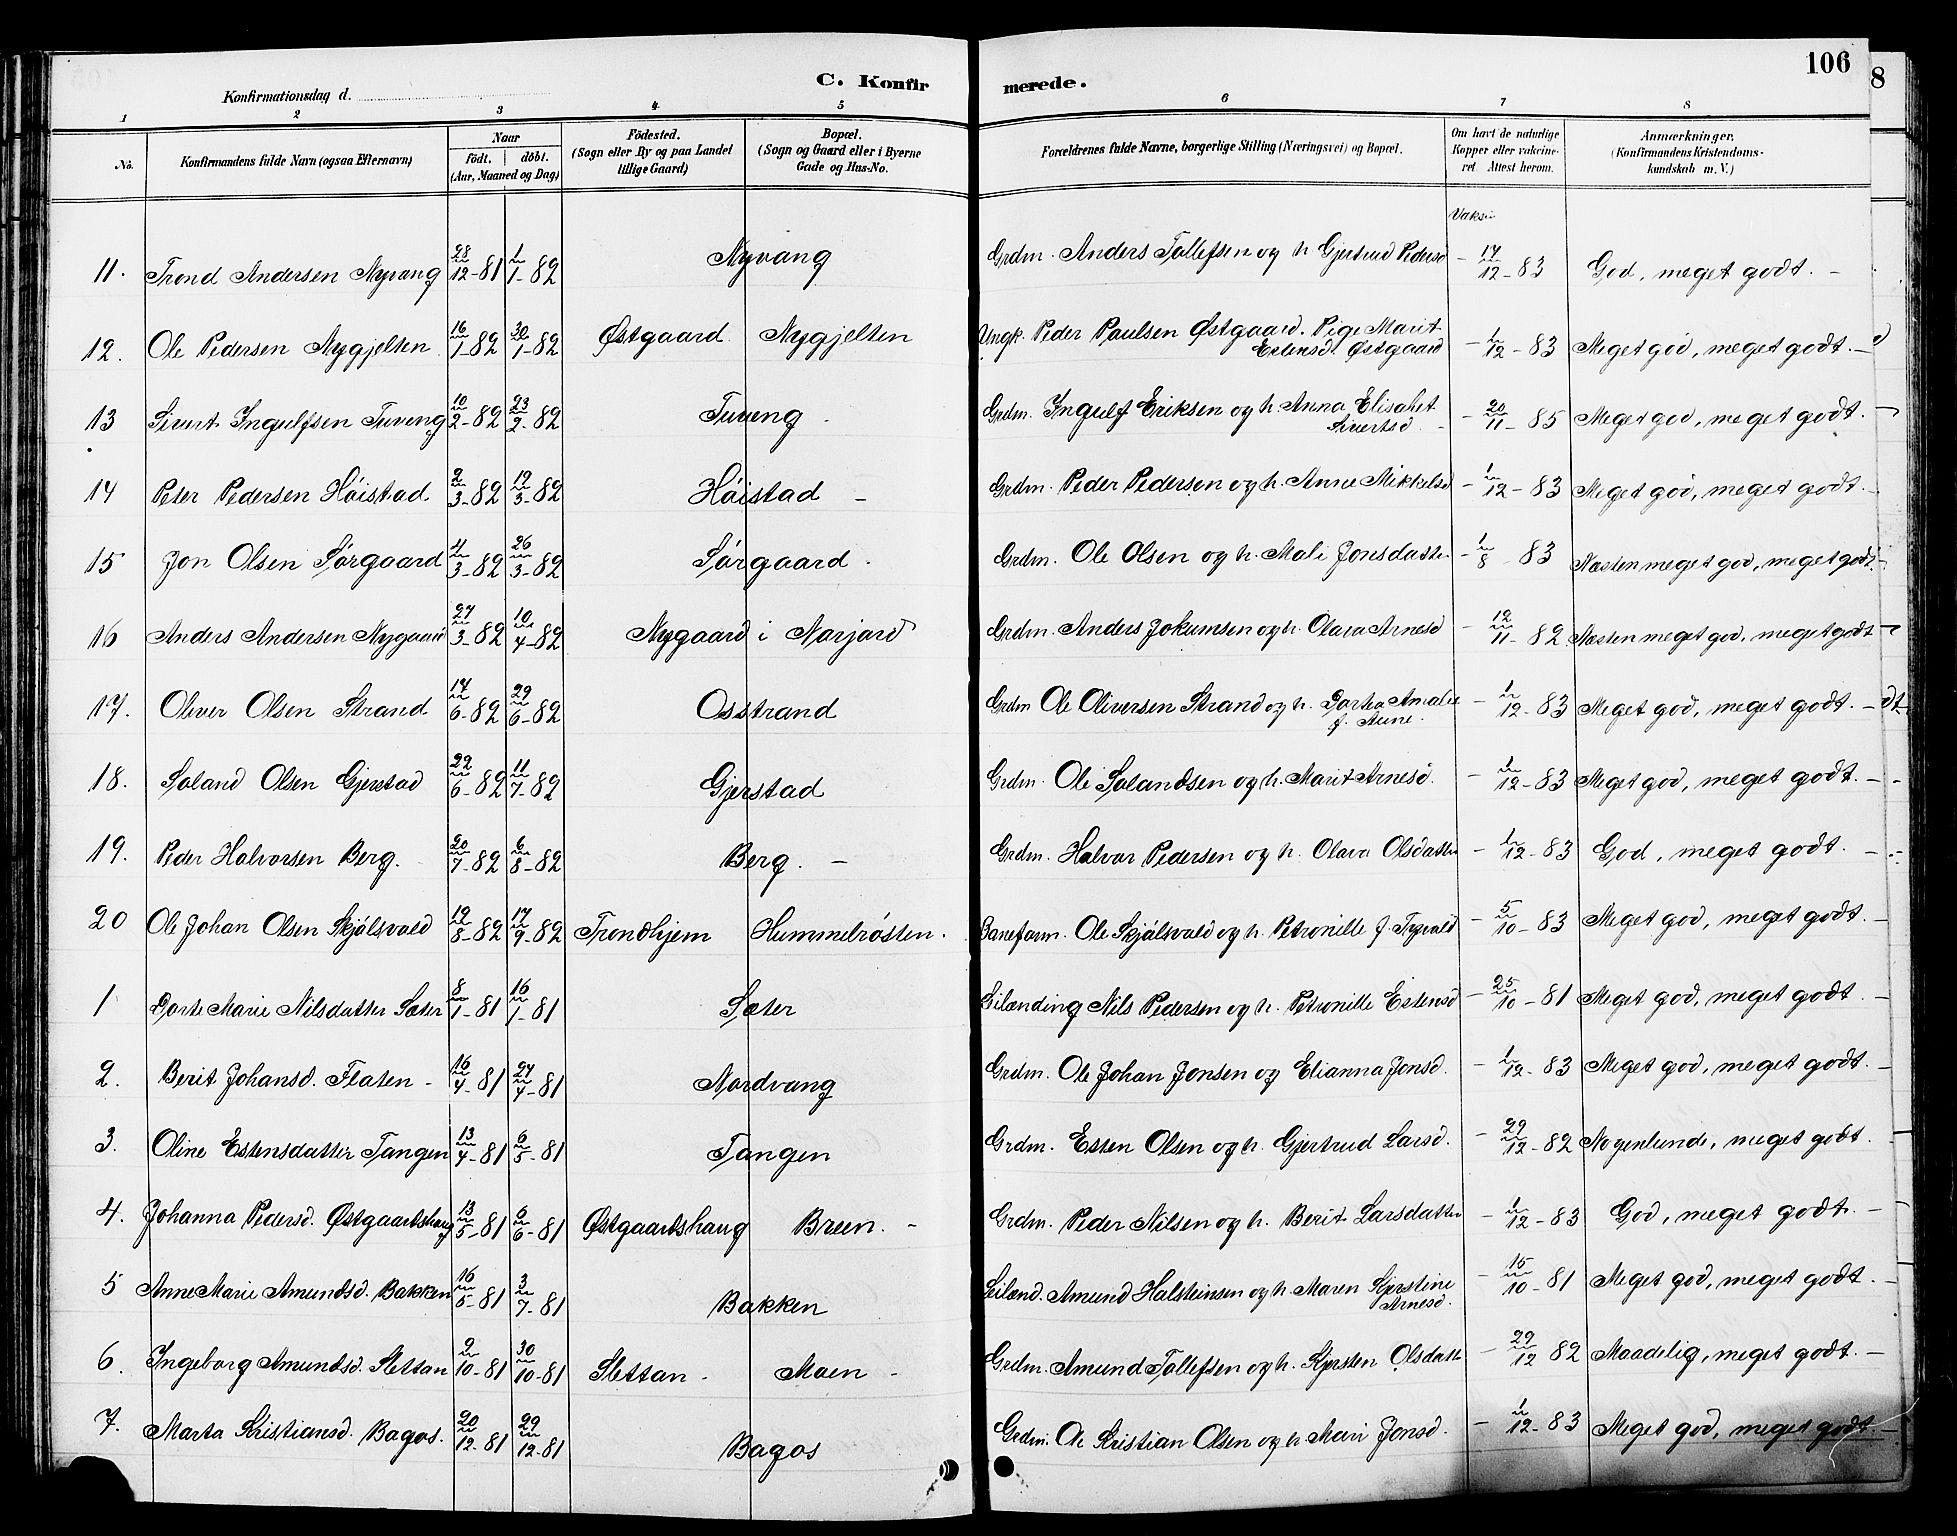 106
8
C. Konfirmerede.
Konfirmationsdag d.
1 2 3 4 5 6 7 8
No. Konfirmandens fulde Navn (ogsaa Efternavn) Naar födt. döbt. (Aar, Maaned og Dag) Födested. (Sogn eller By og paa Landet tillige Gaard) Bopæl. (Sogn og Gaard eller i Byerne Gade og Hus-No. Forældrenes fulde Navne, borgerlige Stilling (Næringsvei) og Bopæl. Om havt de naturlige Kopper eller vakcineret Attest herom. Anmærkninger. (Konfirmandens Kristendomskundskab m. V.)
Vaksi
11. Trond Andersen Nyvang 28/12-81 1/1-82 Nyvang Grdm. Anders Tollefsen og h. Gjertrud Pedersd – 17/12-83 God, meget godt. –
12. Ole Pedersen Nygjelten 16/1-82 30/1-82 Østgaard Nygjelten Ungk. Peder Paulsen Østgaard. Pige Marit Estensd. Østgaard – 1/12-83 Meget god, meget godt. –
13 Sivert Ingulfsen Tuveng 10/2-82 23/2-82 Tuveng Grdm. Ingulf Eriksen og h. Anna Elisabet Sivertsd. – 20/11-85 Meget god, meget godt.
14 Peter Pedersen Höistad 2/3-82 12/3-82 Höistad – Grdm. Peder Pedersen og h. Anne Mikkelsd – 1/12-83 Meget god, meget godt.
15 Jon Olsen Sörgaard 4/3-82 26/3-82 Sörgaard. Grdm. Ole Olsen og h. Mali Jonsdatter – 1/8 83 Næsten meget god, meget godt.
16 Anders Andersen Nygaard 27/3-82 10/4-82 Nygaard i Narjord Grdm. Anders Jokumsen og h. Olava Arnesd – 12/11-82 Næsten meget god, meget godt
17. Oliver Olsen Strand 14/6-82 29/6-82 Osstrand Grdm Ole Oliversen Strand og h. Dortea Amalie f. Aune. – 1/12-83 Meget god, meget godt. –
18. Saland Olsen Gjerstad 22/6-82 11/7-82 Gjerstad Grdm. Ole Salandsen og h. Marit Arnesd. – 1/12-83 Meget god, meget godt. –
19. Peder Halvorsen Berg. 20/7-82 6/8-82 Berg. – Grdm. Halvor Pedersen og h. Olava Olsdatter – 1/12-83 God, meget godt. –
20 Ole Johan Olsen Skjölsvold 12/8-82 17/9-82 Trondhjem Hummelrösten. Baneform. Ole Skjölsvold og h. Petronille f. – 5/10-83 Meget god, meget godt. –
1 Dorte Marie Nilsdatter Sæter 8/1-81 16/1-81 Sæter Nils Pedersen og h. Petronille Estensd – 25/10-81 Meget god, meget godt. –
2. Berit Johansd. Flaten – 16/4-81 24/4-81 Nordvang Grdm. Ole Johan Jonsen og Elianna Jonsd. – 1/12-83 Meget god, meget godt. –
3. Oline Estensdatter Tangen 13/4-81 6/5-81 Tangen Grdm. Esten Olsen og h. Gjertrud Larsd. – 29/12-82 Nogenlunde, meget godt. –
4. Johanna Pedersd. Østgaardshaug 13/5-81 6/6-81 Østgaardshaug Breen. – Grdm. Peder Nilsen og h. Berit Larsdatter – 1/12-83 God, meget godt. –
5 Anne Marie Amundsd. Bakken 16/5-81 3/7-81 Bakken Amund Halsteinsen og h. Maren Kjerstine Arnesd. – 15/10-81 Meget god, meget godt. –
6. Ingeborg Amundsd. Slettan 2/10-81 30/10-81 Slettan – Moen – Grdm. Amund Tollefsen og h. Kjersten Olsdatt – 29/12 82 Maadelig, meget godt. –
7. Marta Kristiansd. Bagos. 20/12-81 29/12-81 Bagos Grdm. Ole Kristian Olsen og h. Mari Jonsd. – 1/12-83 Meget god, meget godt –